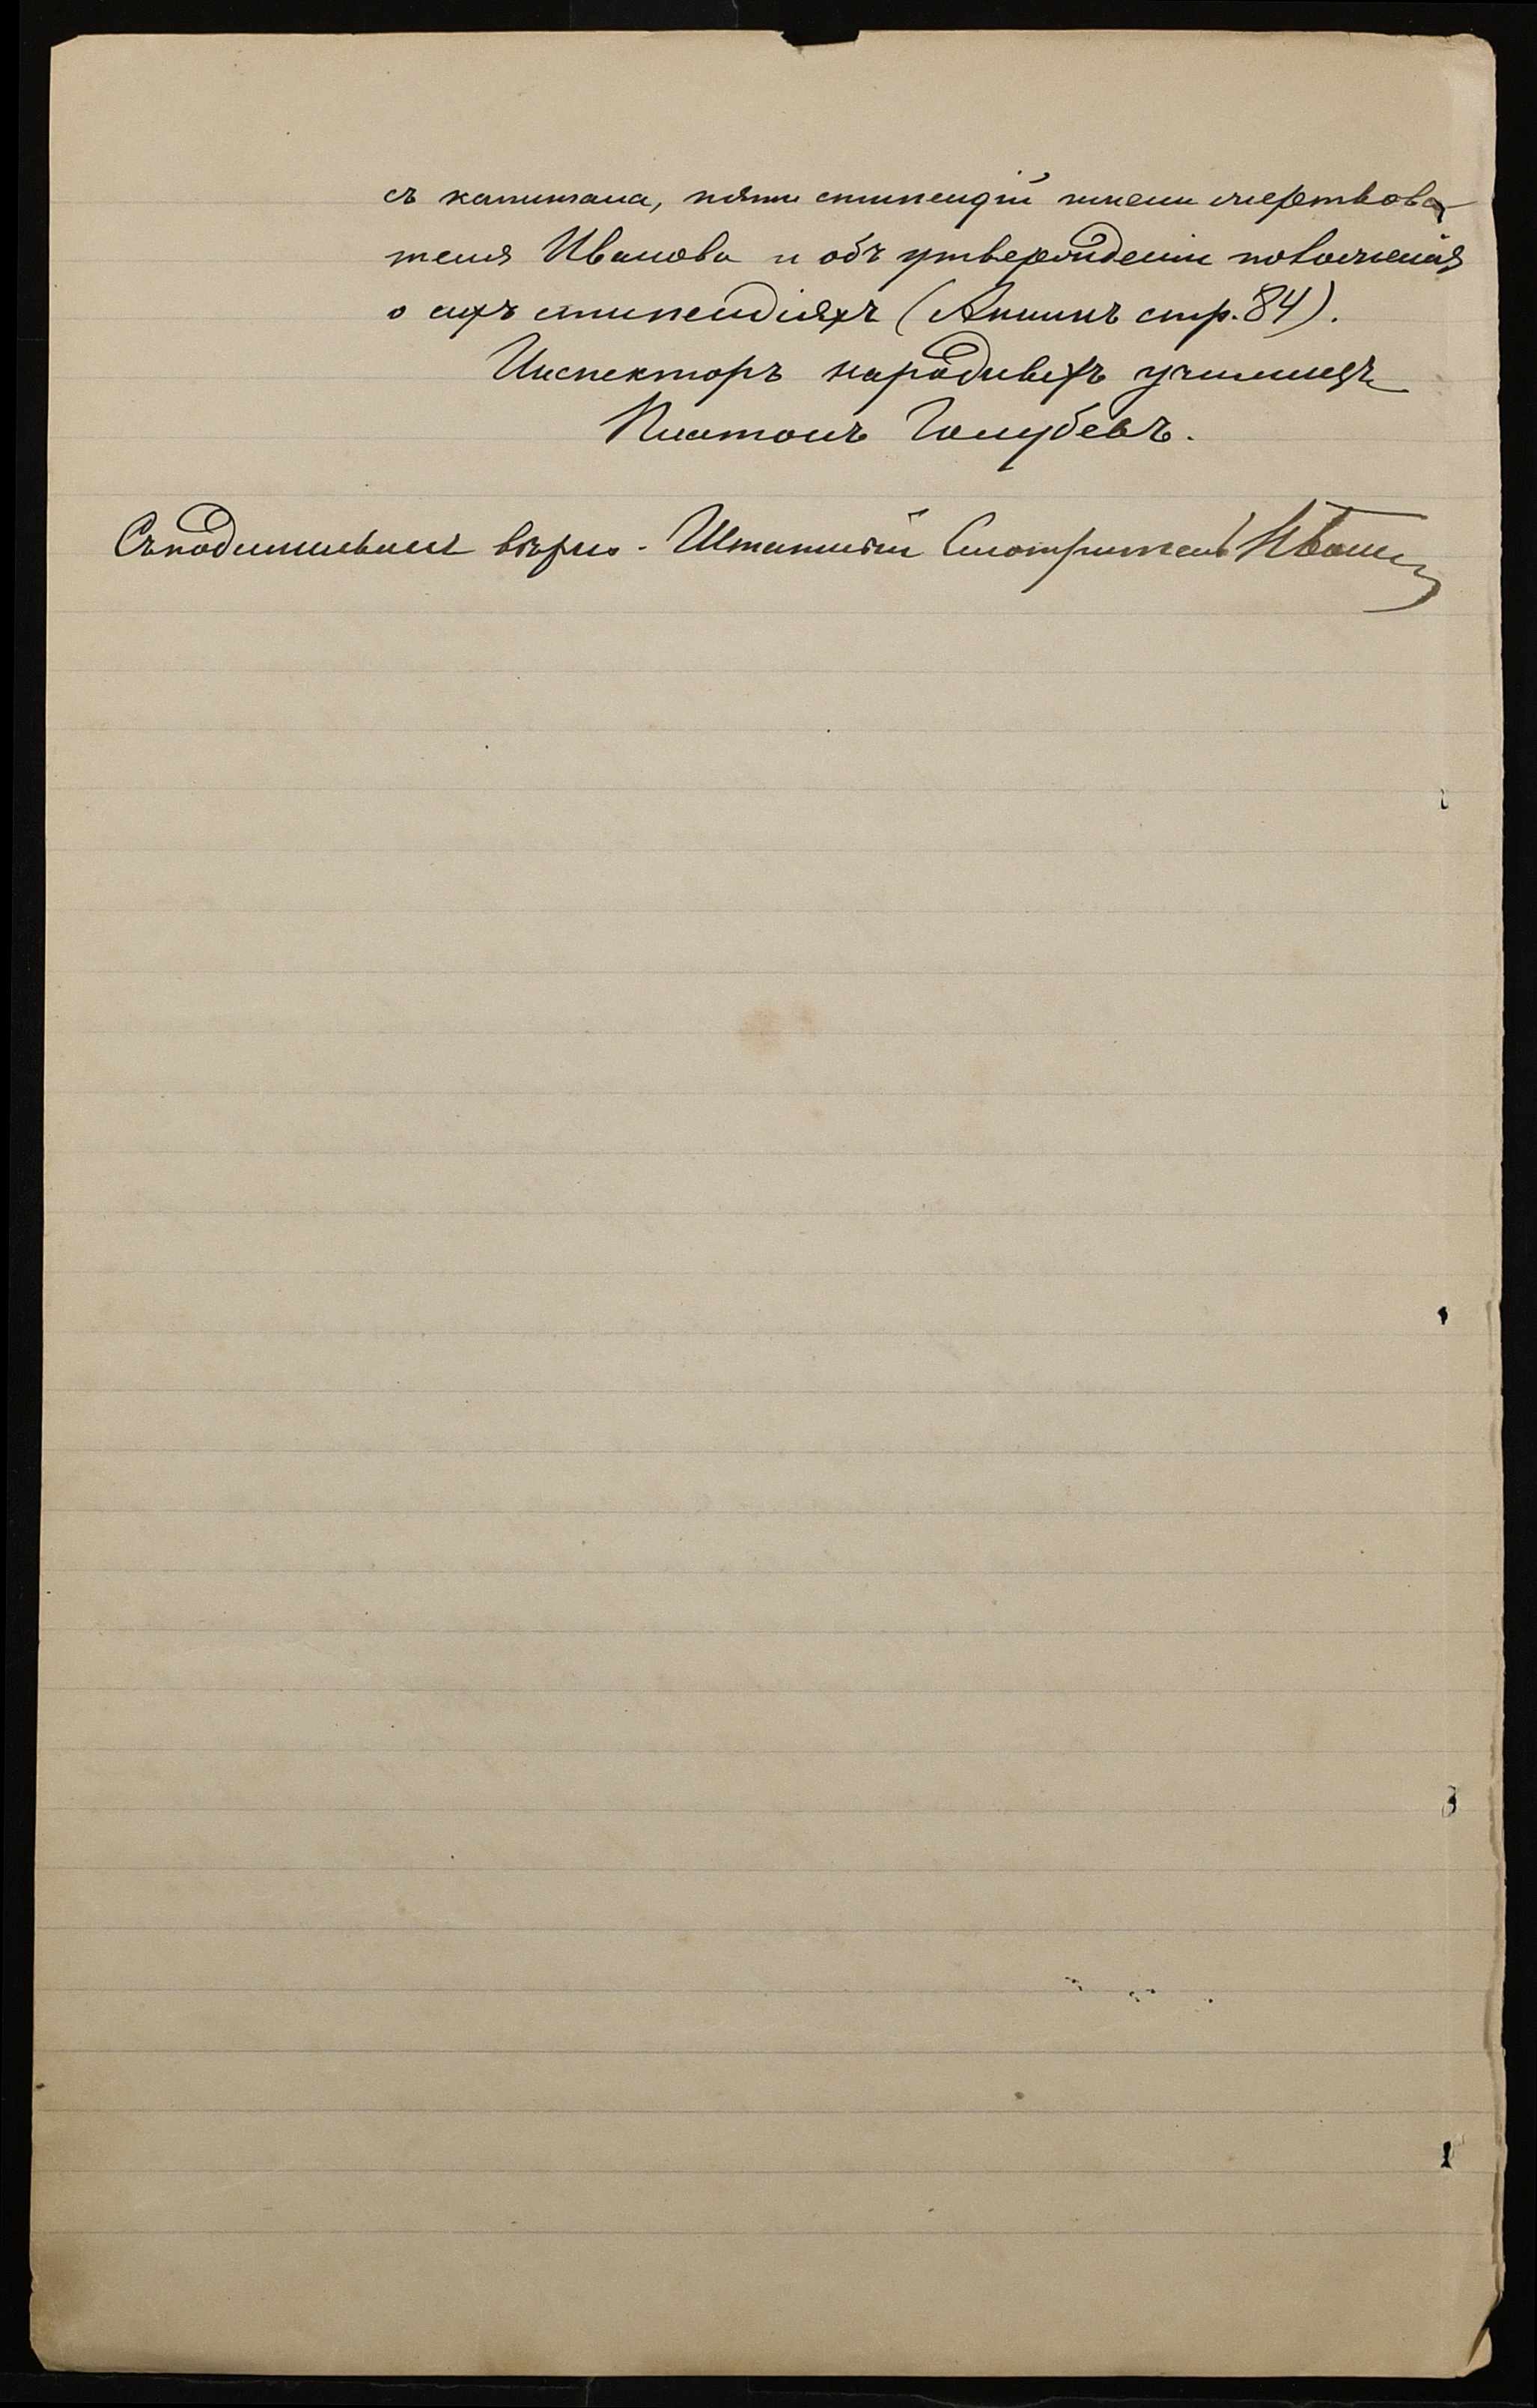 съ капитала, пяти стипендій имени жертвова-
теля Иванова и объ утвержденіи положенія
о сихъ стипендіяхъ (Аншинъ стр. 84).
Инспекторъ народныхъ училищъ
Платонъ Голубевъ.
Съ подлиннымъ вѣрно - Штатный Смотритель